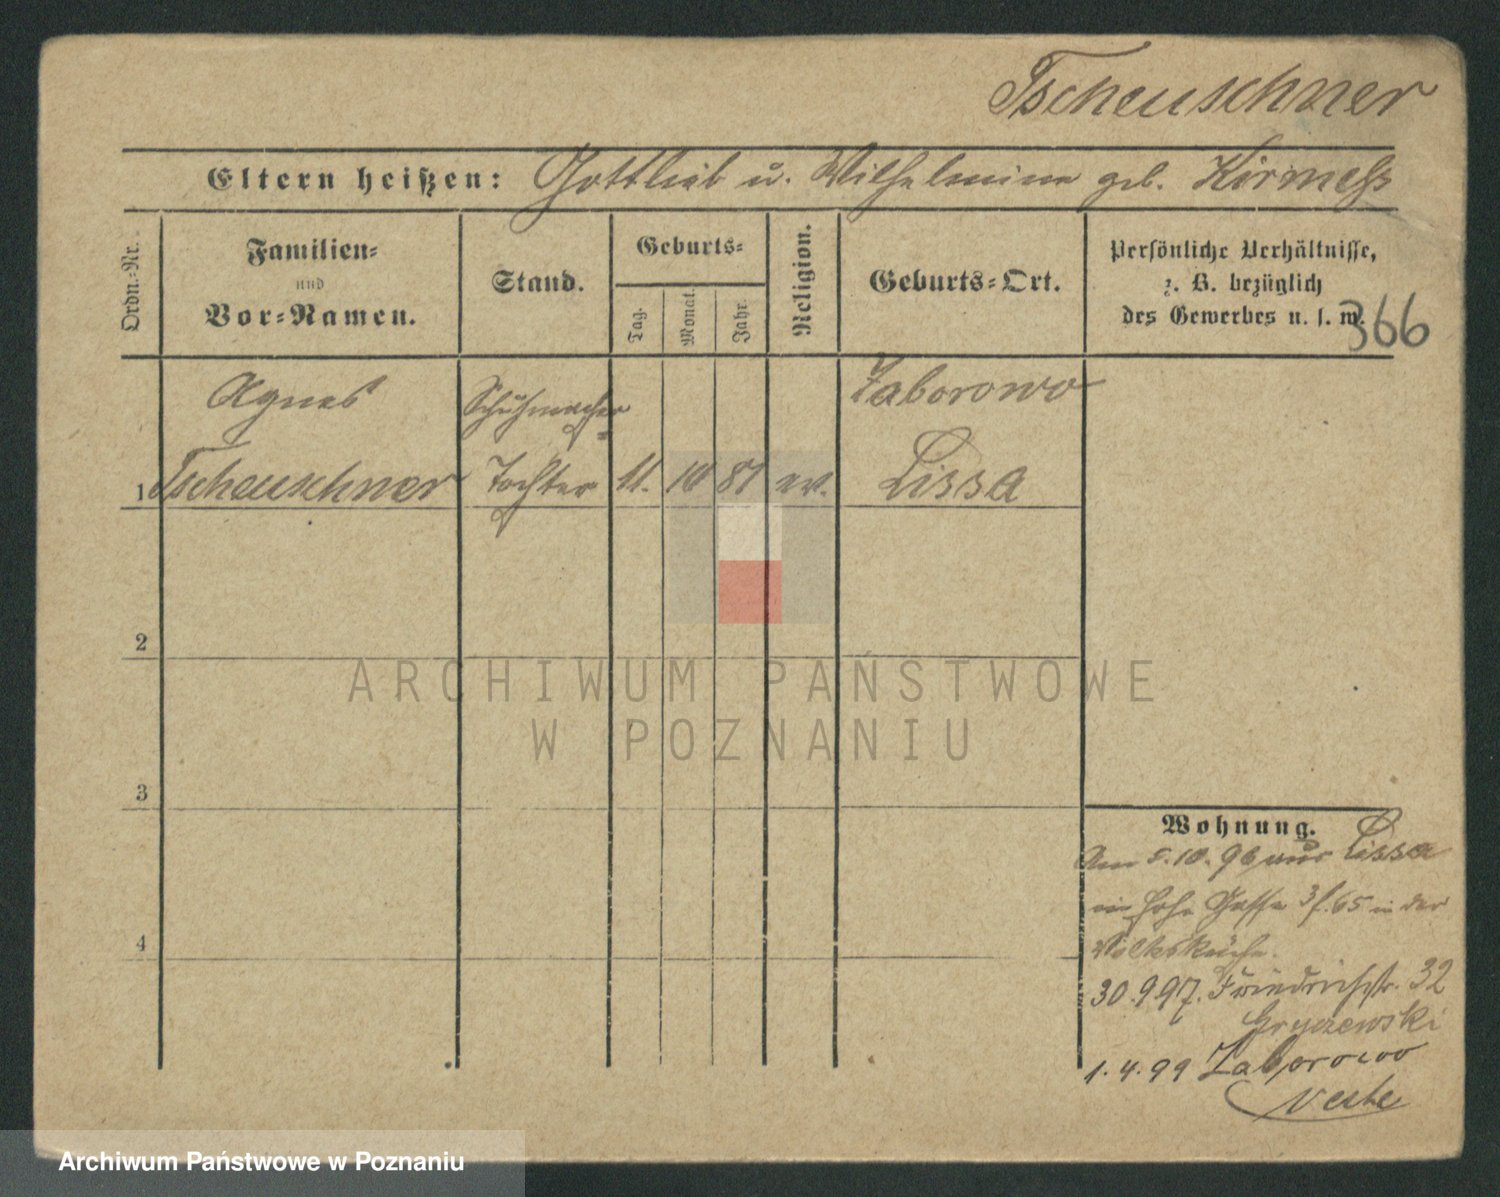 Tscheuschner
Eltern heißen: Gottlieb u. Wilhelmine geb. Kirmeß
Ordn.-Nr.
Familien-
und
Vor-Namen.
Stand.
Geburts-
Tag.
Monat.
Jahr.
Religion.
Geburts-Ort.
Persönliche Verhältnisse,
z. B. bezüglich
des Gewerbes u. s. w.
366
Agnes
Schuhmacher
Zaborowo
1 Tscheuschner Tochter 11. 10 81 ev. Lissa
2
3
4
Wohnung.
Am 5.10.96 aus Lissa
Hohe Gasse 65 in der
Volksküche.
30.9.97. Friedrichstr. 32
Gryczewski
1.4.99 Zaborowo
ARCHIWUM PAŃSTWOWE
W POZNANIU
Archiwum Państwowe w Poznaniu